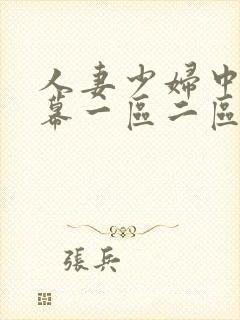 人妻少婦中
幕一區二區
張兵